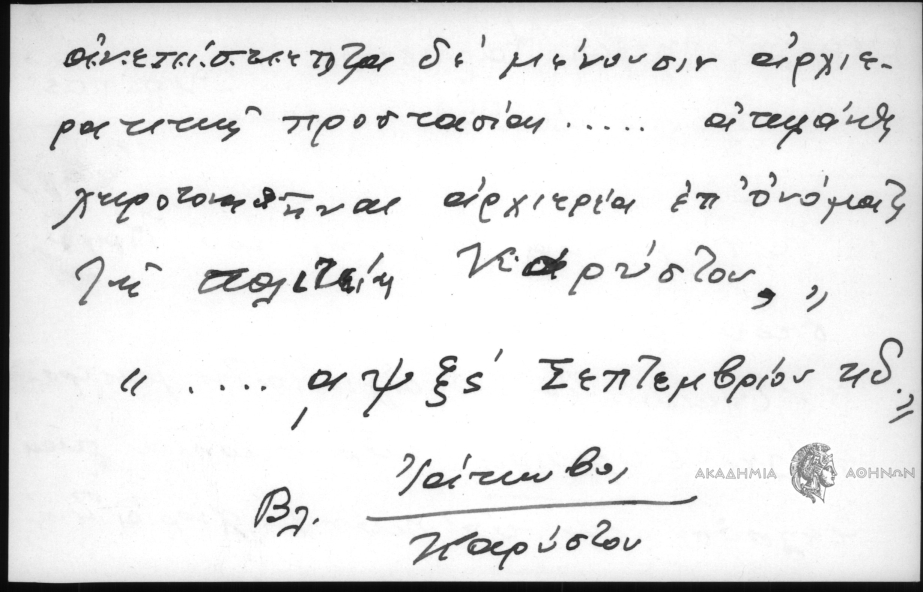 ἀνεπίσκεπτα δὲ μένουσιν ἀρχιε-
ρατικῆς προστασίας .....
χειροτονηθῆναι ἀρχιερέα ἐπ' ὀνόματι
τῆς πολιτείας Καρύστου,,
" ..... ͵αψξς' Σεπτεμβρίου κδ.,,
Βλ. Ἰάκωβος
Καρύστου
ΑΚΑΔΗΜΙΑ ΑΘΗΝΩΝ